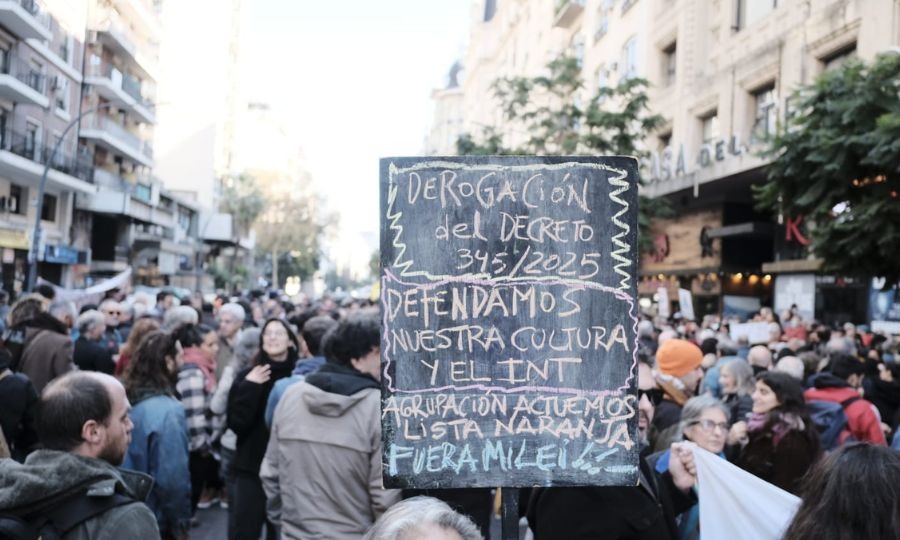 DEROGACIÓN
del DECRETO
345/2025
DEFENDAMOS
NUESTRA CULTURA
Y EL INT
AGRUPACIÓN ACTUEMOS
LISTA NARANJA
FUERA MILEI!!